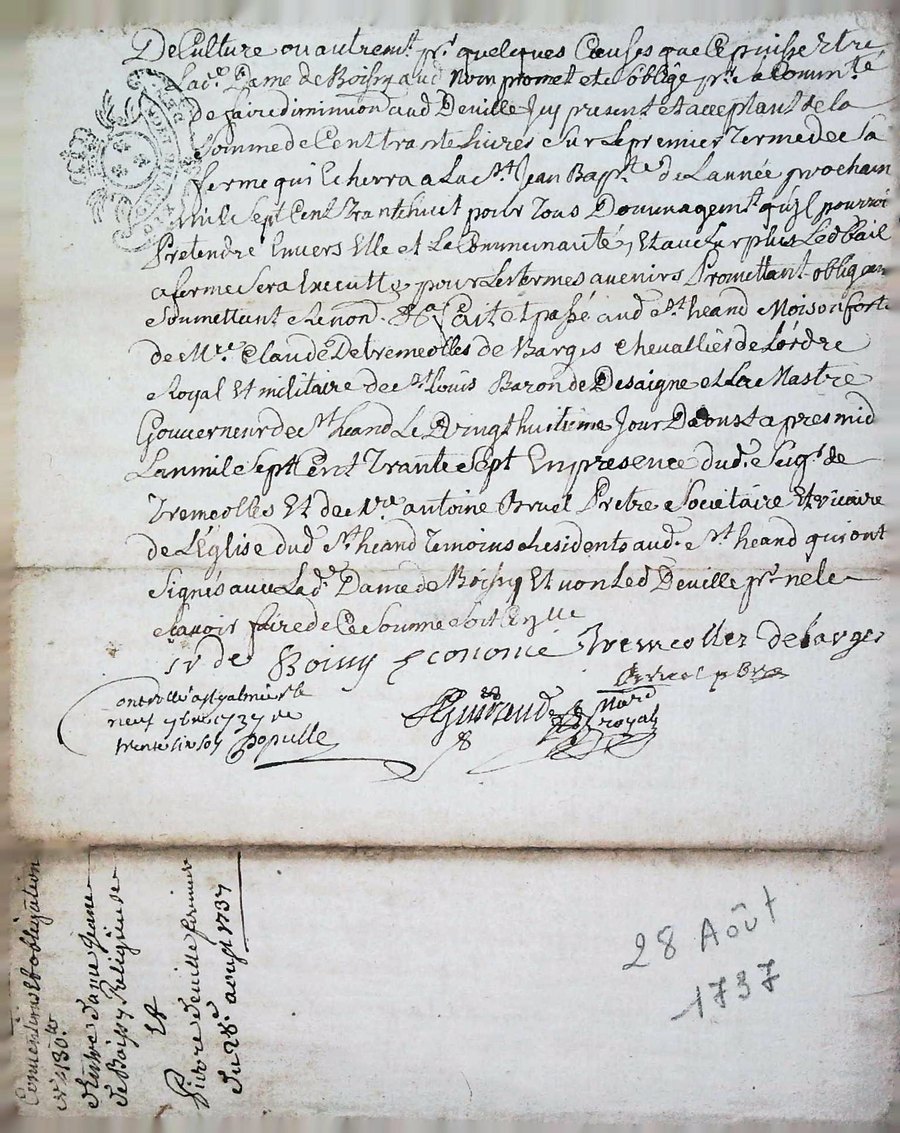 De Culture ou autremt. pr. quelques Causes que Ce puisse Etre
Lade. Dame de Boissy aud Nom promet et soblige pr. sa Communté
de faire diminuon aud Deville Icy present et acceptant de la
Somme de Cent trante Livres Sur Le premier Terme de Sa
ferme qui Echerra a La St. Jean Baptte. de L'année prochain
mil Sept Cent Trante huit pour Tous Dommagemt. qu'il pourroi
Pretendre Envers Elle et La Communauté, Et au Surplus Led Bail
a ferme Sera Executté, pour Les termes avenirs Promettant oblig
Soumettant Renond. &a Fait et passé aud St. heand Maison forte
de Mre. Claude Detremeolles de Barges Chevallier de L'ordre
Royal Et militaire de St. Louis Baron de Desaigne et La Mastre
Gouverneur de St. heand Le Vingt huitieme Jour Daoust apres mid
Lan mil Sept Cent Trante Sept En presence dud. Seigr. de
Tremeolles Et de Mre. antoine Bruel Pretre Societaire Et vicaire
de L'Eglise dud. St. heand Temoins Residents aud. St. heand qui ont
Signés avec Lade. Dame de Boissy Et non Led Deville pr. ne le
Scavoir faire de Ce Sommé Soit Enjlle
sr de Boissy Econome Tremeolles de barges
Bruel pbre
Controllé a St galmier le
neuf 7bre 1737 Re
trente six sols Populle
Guiraud
Nore
royal
Conventions Et obligation
de 130 tt
Entre Dame Jeanne
de Boissy Religieuse
Et
Pierre Deuille fermier
Du 28e. aoust 1737
28 Août
1737